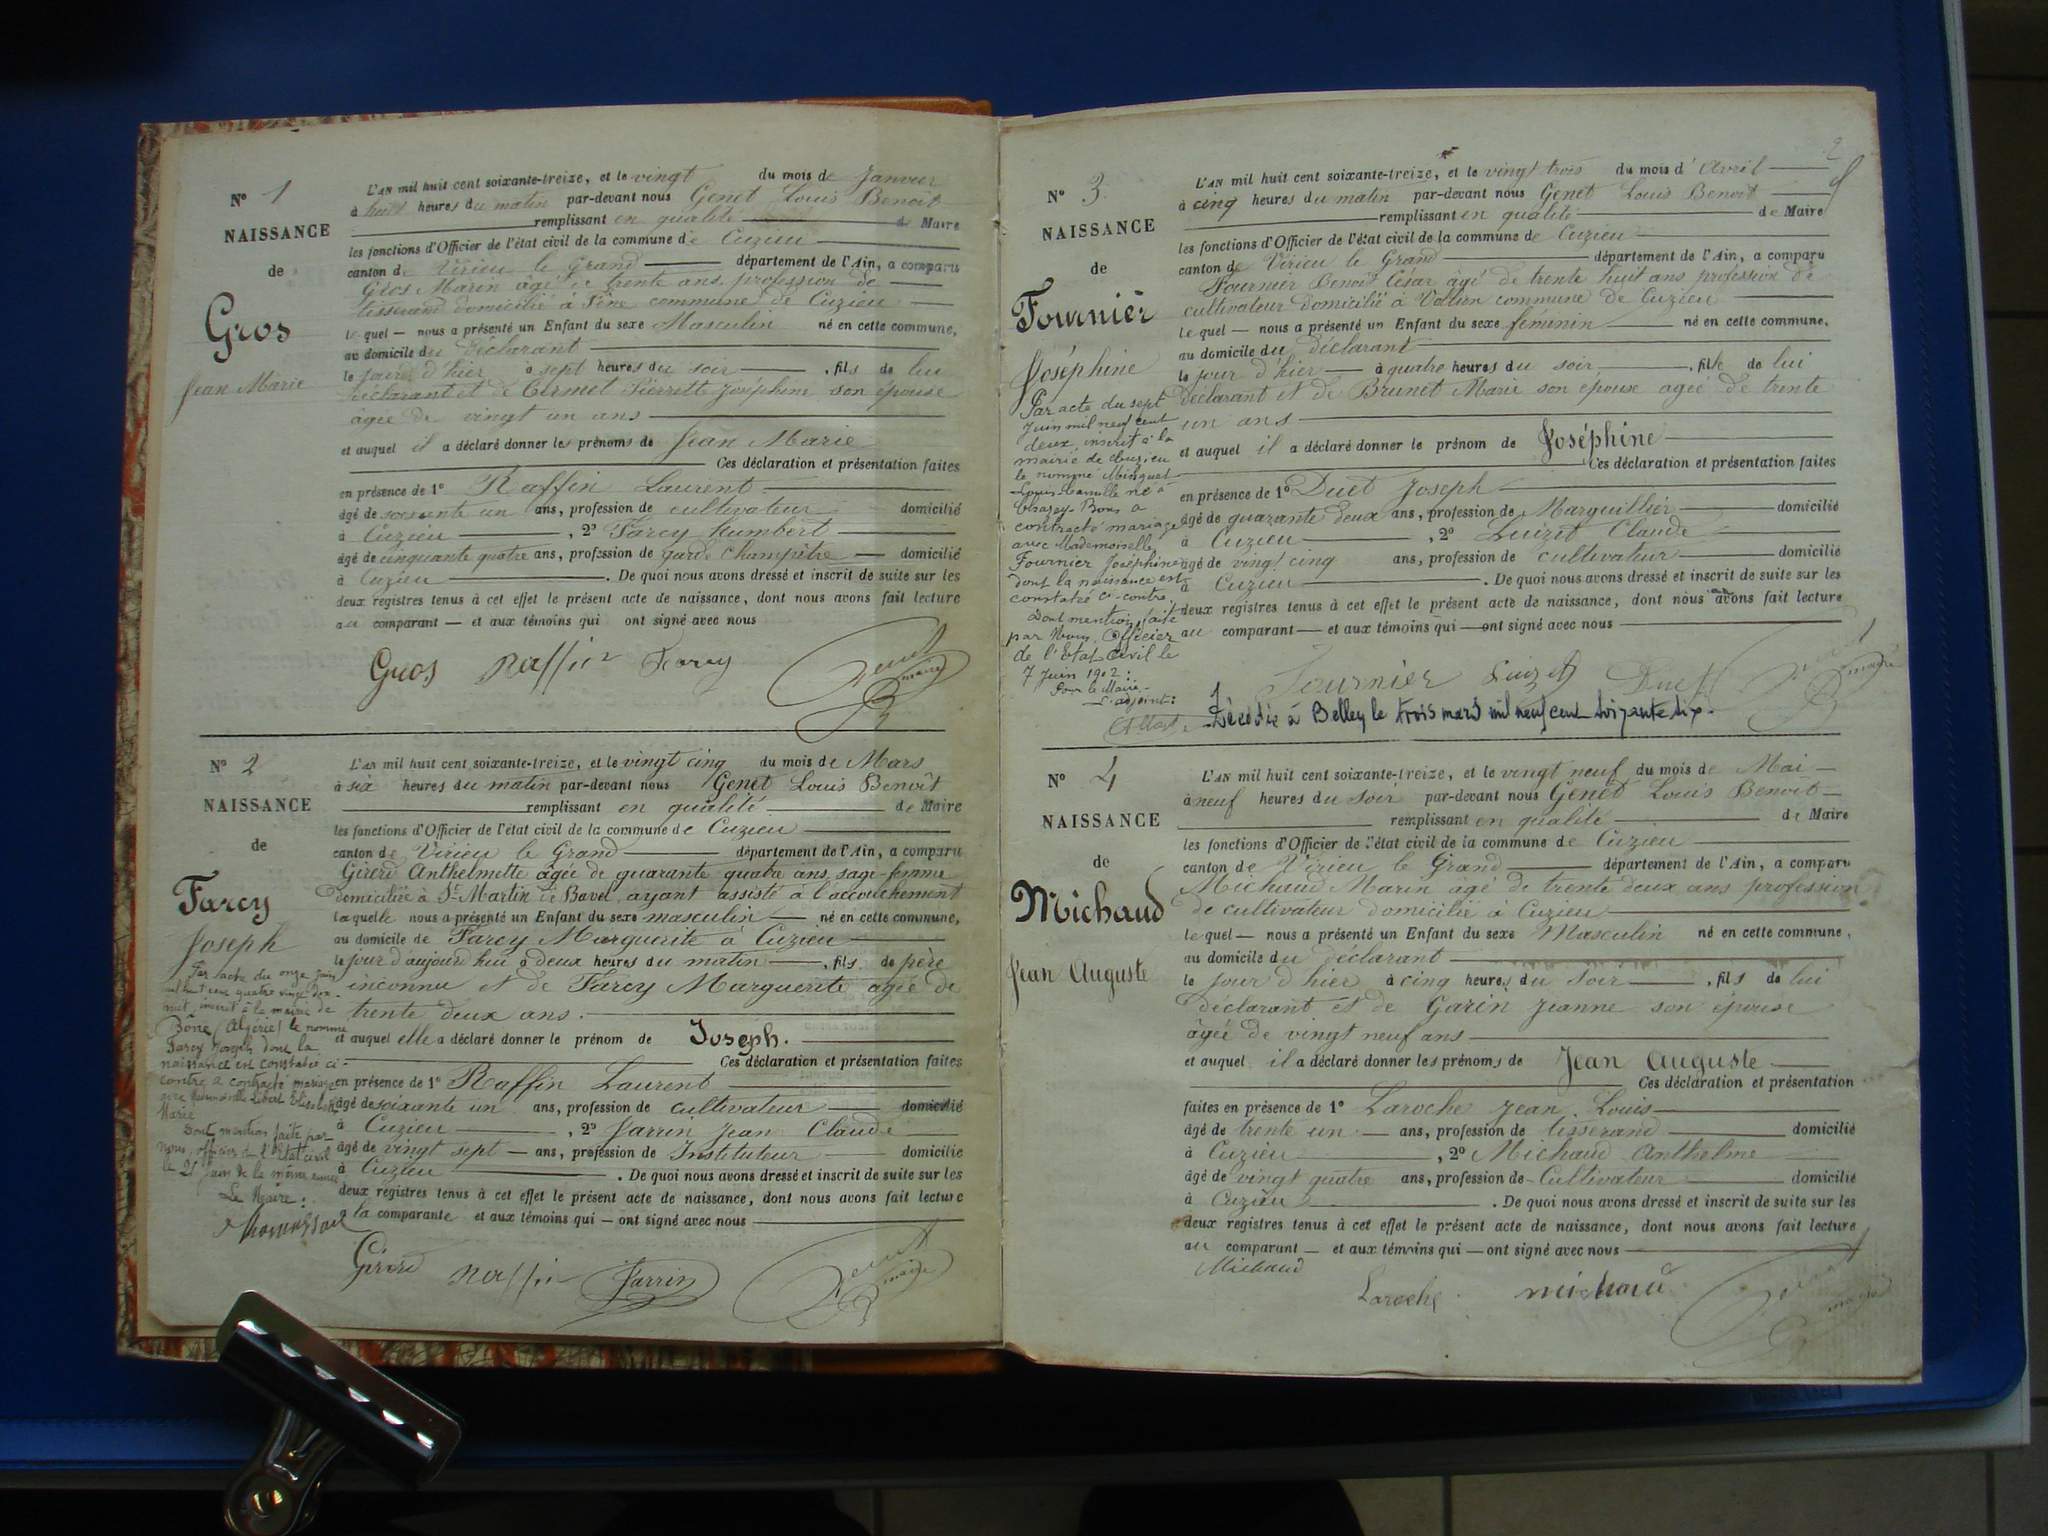 N° 1
NAISSANCE
de
Gros
Jean Marie
L'AN mil huit cent soixante-treize, et le vingt du mois de Janvier
à huit heures du matin par-devant nous Genet Louis Benoit
remplissant en qualité de Maire
les fonctions d'Officier de l'état civil de la commune de Cuzieu
canton de Virieu le Grand département de l'Ain, a comparu
Gros Marin âgé de trente ans profession de
tisserand domicilié à commune de Cuzieu
le quel nous a présenté un Enfant du sexe Masculin né en cette commune,
au domicile du déclarant
le jour d'hier à sept heures du soir, fils de lui
déclarant et de Pierrette Joséphine son épouse
âgée de vingt un ans
et auquel il a déclaré donner les prénoms de Jean Marie
Ces déclaration et présentation faites
en présence de 1° Raffin Laurent
âgé de soixante un ans, profession de cultivateur domicilié
à Cuzieu, 2° Farcy humbert
âgé de cinquante quatre ans, profession de garde champêtre domicilié
à Cuzieu. De quoi nous avons dressé et inscrit de suite sur les
deux registres tenus à cet effet le présent acte de naissance, dont nous avons fait lecture
au comparant et aux témoins qui ont signé avec nous
Gros Raffin Farcy Genet maire
N° 2
NAISSANCE
de
Farcy
Joseph
Par acte du onze juin
mil huit cent quatre vingt dix-
huit, inscrit à la mairie de
Bône (Algérie) le nommé
Farcy Joseph dont la
naissance est constatée ci-
contre a contracté mariage
avec Mademoiselle Libert Elisabeth
Marie
Dont mention faite par
nous, officier de l'Etat civil
le 21 juin de la même année
Le Maire:
L'AN mil huit cent soixante-treize, et le vingt cinq du mois de Mars
à six heures du matin par-devant nous Genet Louis Benoit
remplissant en qualité de Maire
les fonctions d'Officier de l'état civil de la commune de Cuzieu
canton de Virieu le Grand département de l'Ain, a comparu
Girerd Anthelmette âgée de quarante quatre ans, sage-femme
domiciliée à St Martin de Bavel, ayant assisté à l'accouchement
laquelle nous a présenté un Enfant du sexe masculin né en cette commune,
au domicile de Farcy Marguerite à Cuzieu
le jour d'aujourd'hui à deux heures du matin, fils de père
inconnu et de Farcy Marguerite agée de
trente deux ans.
et auquel elle a déclaré donner le prénom de Joseph.
Ces déclaration et présentation faites
en présence de 1° Raffin Laurent
âgé de soixante un ans, profession de cultivateur domicilié
à Cuzieu, 2° Jarrin Jean Claude
âgé de vingt sept ans, profession de Instituteur domicilié
à Cuzieu. De quoi nous avons dressé et inscrit de suite sur les
deux registres tenus à cet effet le présent acte de naissance, dont nous avons fait lecture
a la comparante et aux témoins qui ont signé avec nous
Girerd Raffin Jarrin Genet maire
2
N° 3
NAISSANCE
de
Fournier
Joséphine
Par acte du sept
Juin mil neuf cent
deux inscrit à la
mairie de Cuzieu
le nommé Minguet
Louis Camille né à
Chazey-Bons a
contracté mariage
avec Mademoiselle
Fournier Joséphine
dont la naissance est
constatée ci-contre.
Dont mention faite
par Nous, Officier
de l'Etat Civil le
7 Juin 1902:
Pour le Maire
L'adjoint:
L'AN mil huit cent soixante-treize, et le vingt trois du mois d'Avril
à cinq heures du matin par-devant nous Genet Louis Benoit
remplissant en qualité de Maire
les fonctions d'Officier de l'état civil de la commune de Cuzieu
canton de Virieu le Grand département de l'Ain, a comparu
Fournier Benoit César âgé de trente huit ans profession de
cultivateur domicilié à commune de Cuzieu
le quel nous a présenté un Enfant du sexe féminin né en cette commune,
au domicile du déclarant
le jour d'hier à quatre heures du soir, fille de lui
déclarant et de Brunet Marie son épouse agée de trente
un ans
et auquel il a déclaré donner le prénom de Joséphine
Ces déclaration et présentation faites
en présence de 1° Duet Joseph
âgé de quarante deux ans, profession de Marguillier domicilié
à Cuzieu, 2° Luizet Claude
âgé de vingt cinq ans, profession de cultivateur domicilié
à Cuzieu. De quoi nous avons dressé et inscrit de suite sur les
deux registres tenus à cet effet le présent acte de naissance, dont nous avons fait lecture
au comparant et aux témoins qui ont signé avec nous
Fournier Luizet Duet Genet maire
Décédée à Belley le trois mars mil neuf cent soixante six.
N° 4
NAISSANCE
de
Michaud
Jean Auguste
L'AN mil huit cent soixante-treize, et le vingt neuf du mois de Mai
à neuf heures du soir par-devant nous Genet Louis Benoit
remplissant en qualité de Maire
les fonctions d'Officier de l'état civil de la commune de Cuzieu
canton de Virieu le Grand département de l'Ain, a comparu
Michaud Marin âgé de trente deux ans profession
de cultivateur domicilié à Cuzieu
le quel nous a présenté un Enfant du sexe Masculin né en cette commune,
au domicile du déclarant
le jour d'hier à cinq heures du soir, fils de lui
déclarant et de Garin Jeanne son épouse
âgée de vingt neuf ans
et auquel il a déclaré donner les prénoms de Jean Auguste
Ces déclaration et présentation
faites en présence de 1° Laroche Jean Louis
âgé de trente un ans, profession de tisserand domicilié
à Cuzieu, 2° Michaud Anthelme
âgé de vingt quatre ans, profession de Cultivateur domicilié
à Cuzieu. De quoi nous avons dressé et inscrit de suite sur les
deux registres tenus à cet effet le présent acte de naissance, dont nous avons fait lecture
au comparant et aux témoins qui ont signé avec nous
Michaud
Laroche michaud Genet maire